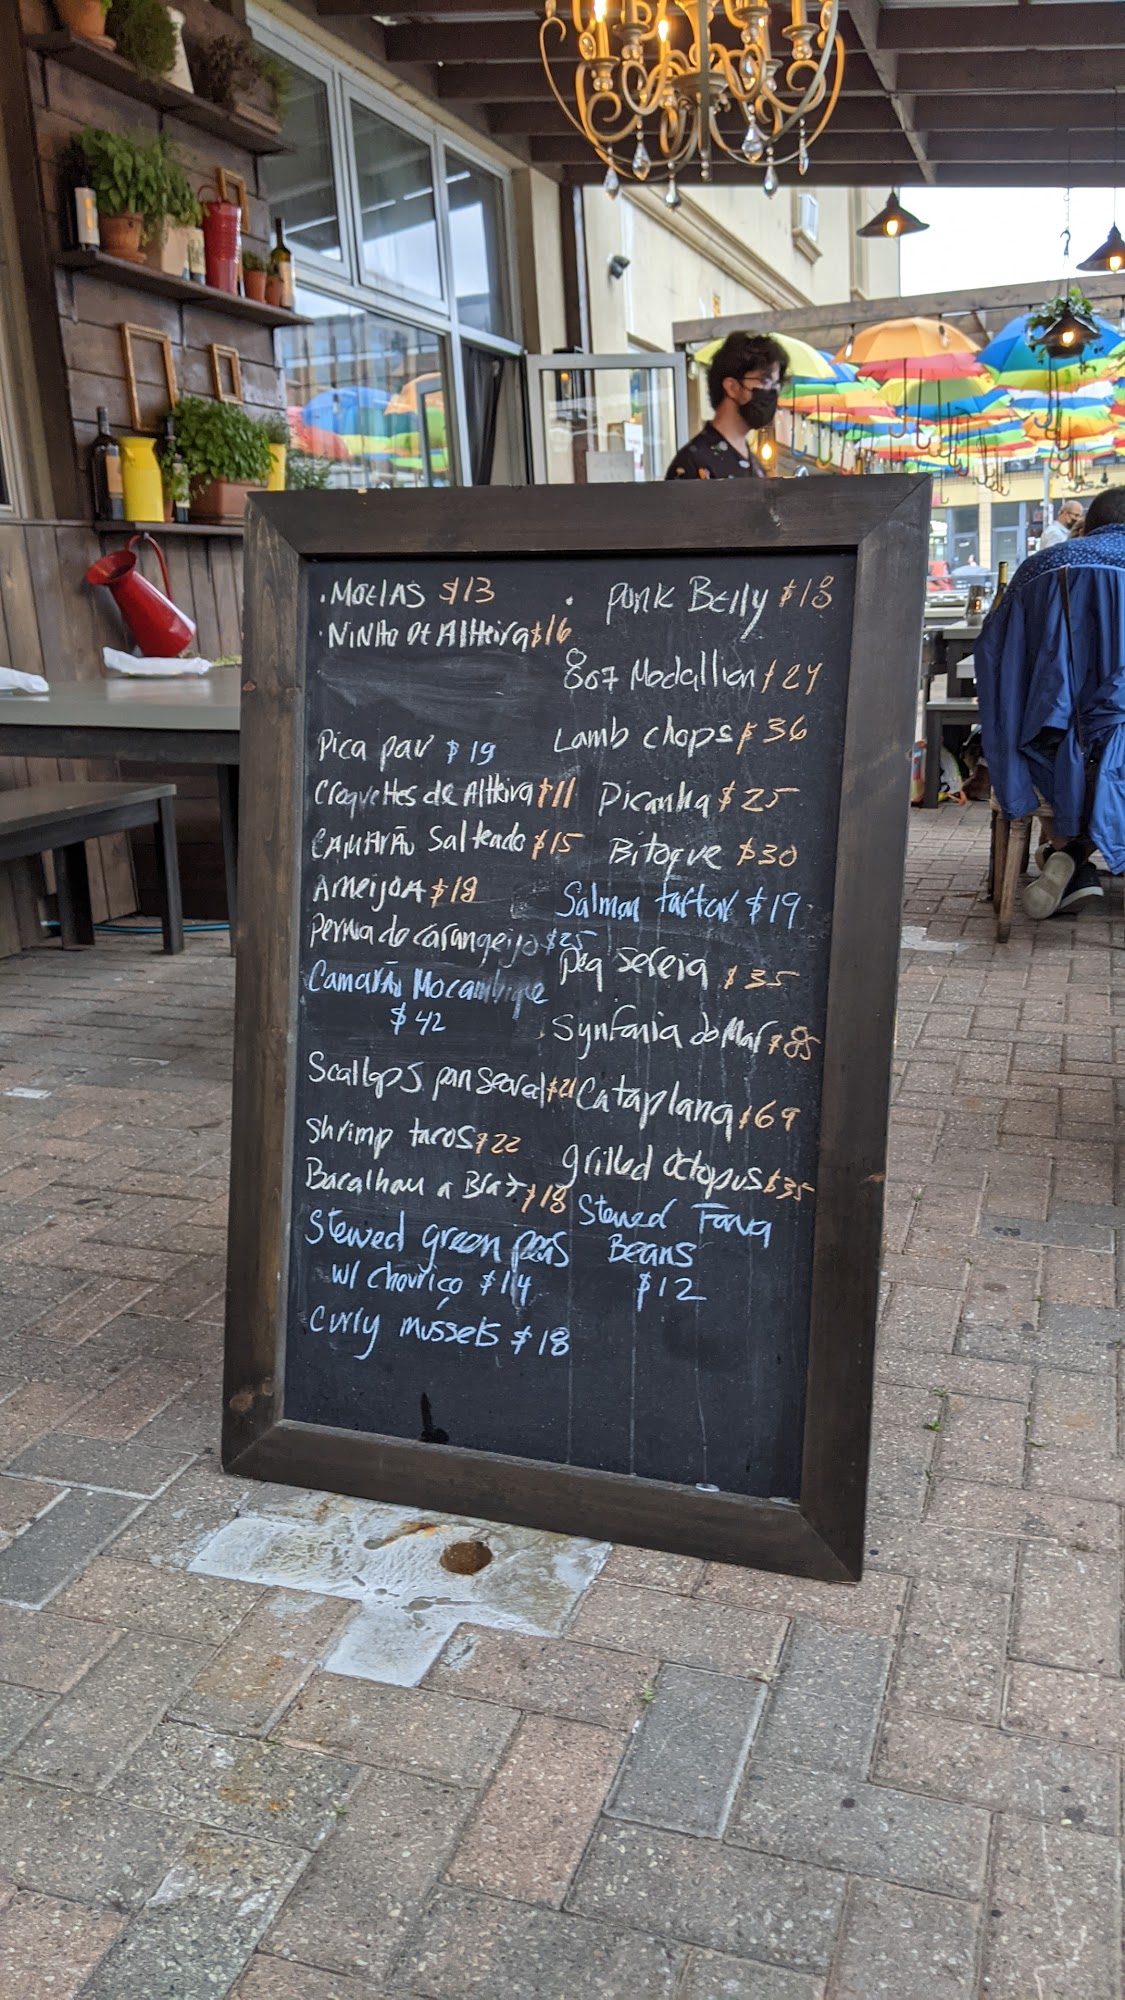 · MOELAS $13
· NINHO DE AlHeira $16
Pica pau $19
Croquettes de AlHeira $11
CAMARÃO Salteado $15
AMEIJOA $18
perna do carangeijo $25
Camarão Mocambique
$42
Scallops pan seared $21
shrimp tacos $22
Bacalhau a Braz $18
Stewed green peas
w/ chouriço $14
Curry mussels $18
· Pork Belly $18
8oz Medallion $24
Lamb chops $36
Picanha $25
Bitoque $30
Salmon tartar $19
sereia $35
Synfonia do Mar $85
Cataplana $69
grilled octopus $35
Stewed Fava
Beans
$12